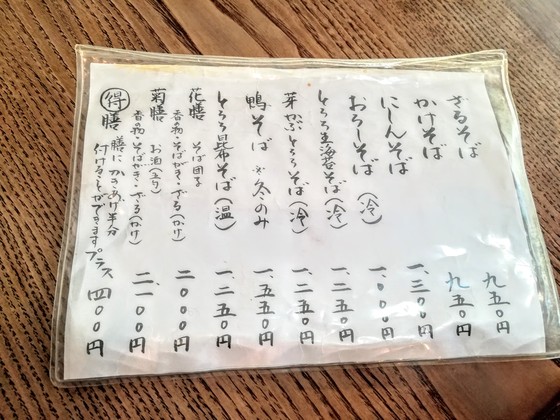 ざるそば 九五〇円
かけそば 九五〇円
にしんそば 一、三〇〇円
おろしそば(冷) 一、〇〇〇円
とろろ玉海苔そば(冷) 一、二五〇円
芽かぶとろろそば(冷) 一、二五〇円
鴨そば ※冬のみ 一、五五〇円
とろろ昆布そば(温) 一、二五〇円
花膳 そば団子
香の物・そばがき・ざる(かけ) 二〇〇〇円
菊膳 お酒(五勺)
香の物・そばがき・ざる(かけ) 二、一〇〇円
得膳 膳にかきあげ半分
付けることができます プラス 四〇〇円